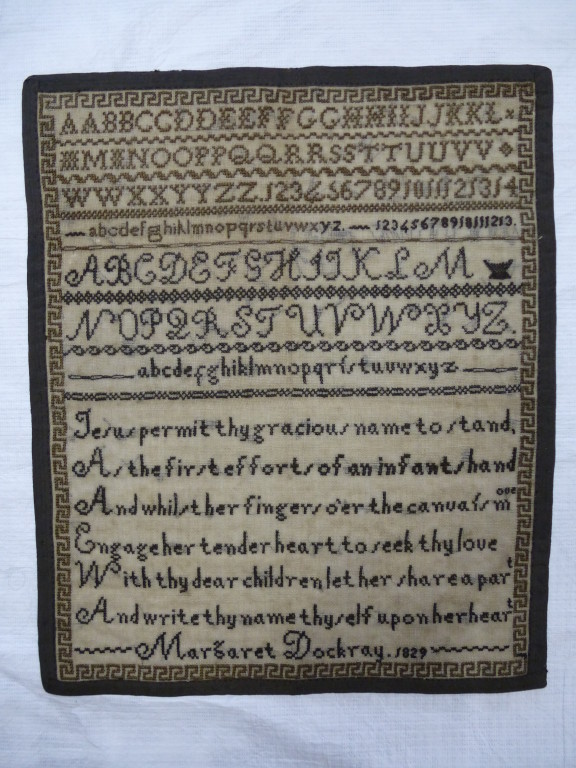 AABBCCDDEEFFGGHHIIJJKKL
MMNNOOPPQQRRSSTTUUVV
WWXXYYZZ.1234567891011121314
abcdefghiklmnopqrstuvwxyz. 12345678910111213.
ABCDEFGHIJKLM
NOPQRSTUVWXYZ.
abcdefghiklmnopqrſstuvwxyz
Jesus permit thy gracious name to stand,
As the first efforts of an infants hand
And whilst her fingers o'er the canvaſs move
Engage her tender heart to seek thy love
With thy dear children let her share a part
And write thy name thyself upon her heart
Margaret Dockray. 1829